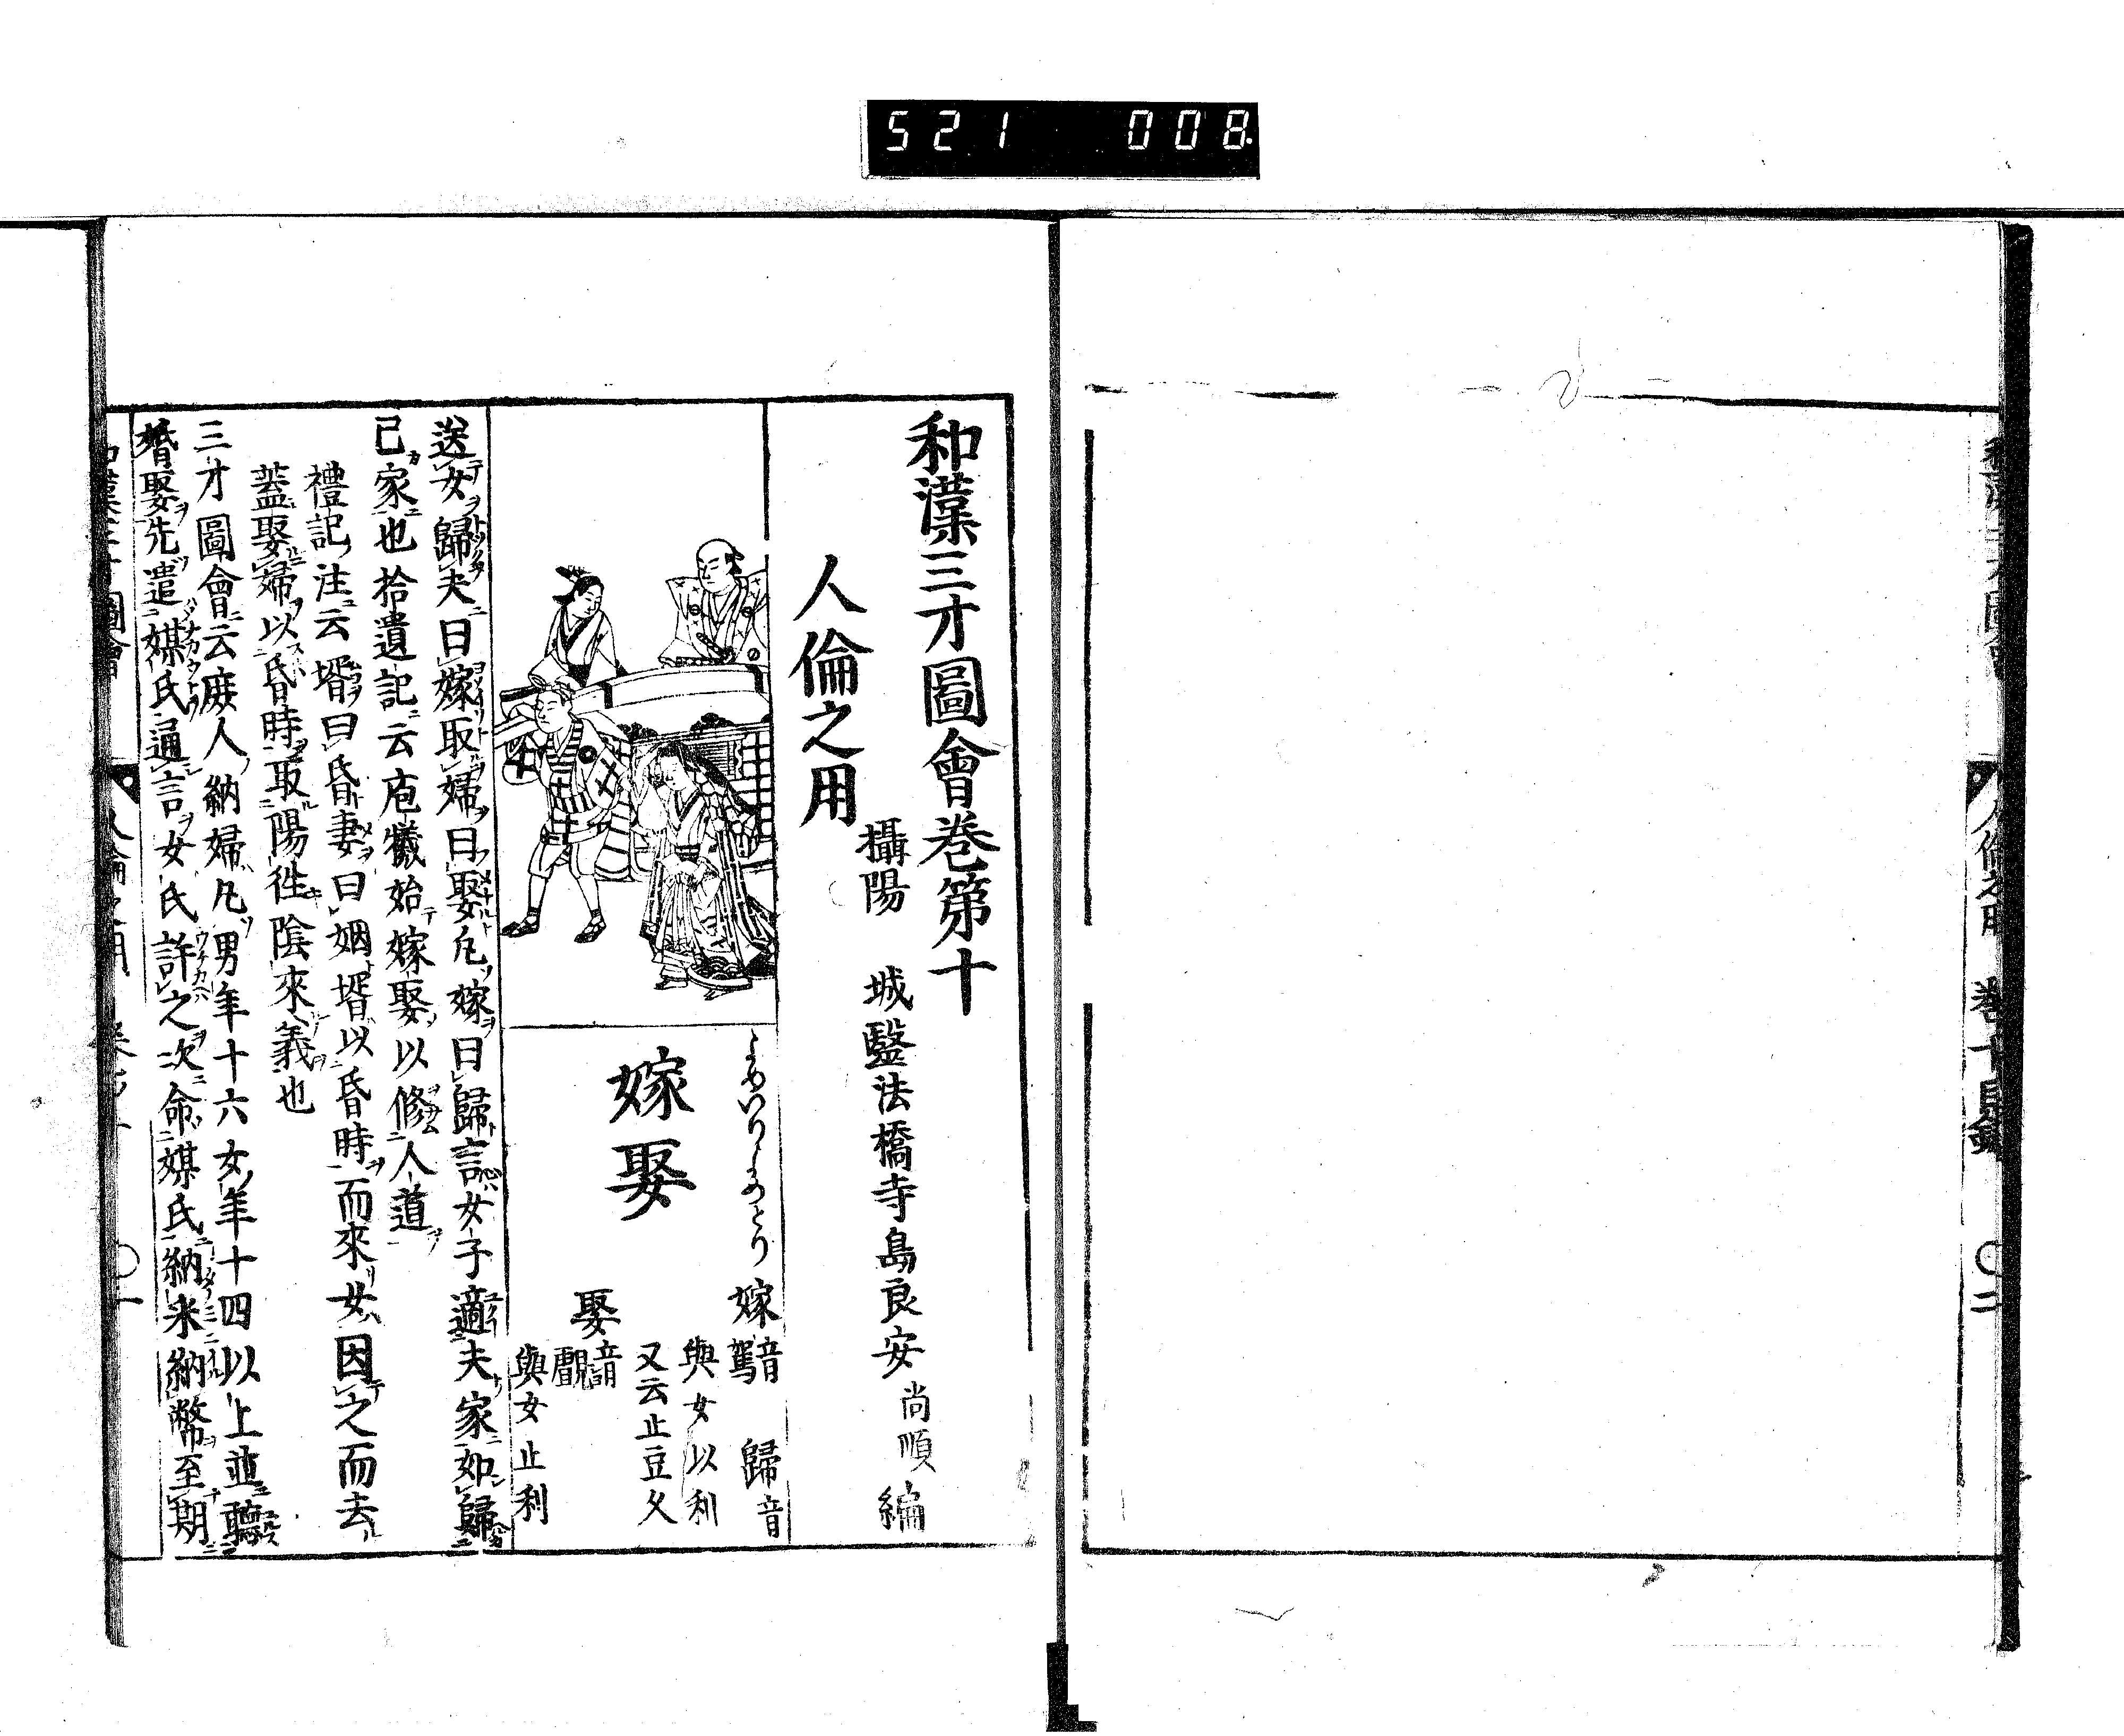 521 008
巻十目録
〇二
和漢三才圖會巻第十
攝陽 城醫法橋寺島良安尚順編
人倫之用
よめいりよめとり
嫁娶
嫁音駕 歸音
與女以利
又云止豆久
娶音諝覰
與女止利
送女歸夫曰嫁取婦曰娶凡嫁曰歸言女子適夫家如歸
己家也拾遺記云庖犠始嫁娶以修人道
禮記注云壻曰昏妻曰姻壻以昏時而來女因之而去
蓋娶婦以昏時取陽徃陰來義也
三才圖會云庻人納婦凡男年十六女年十四以上並聽
婚娶先遣媒氏通言女氏許之次命媒氏納采納幣至期